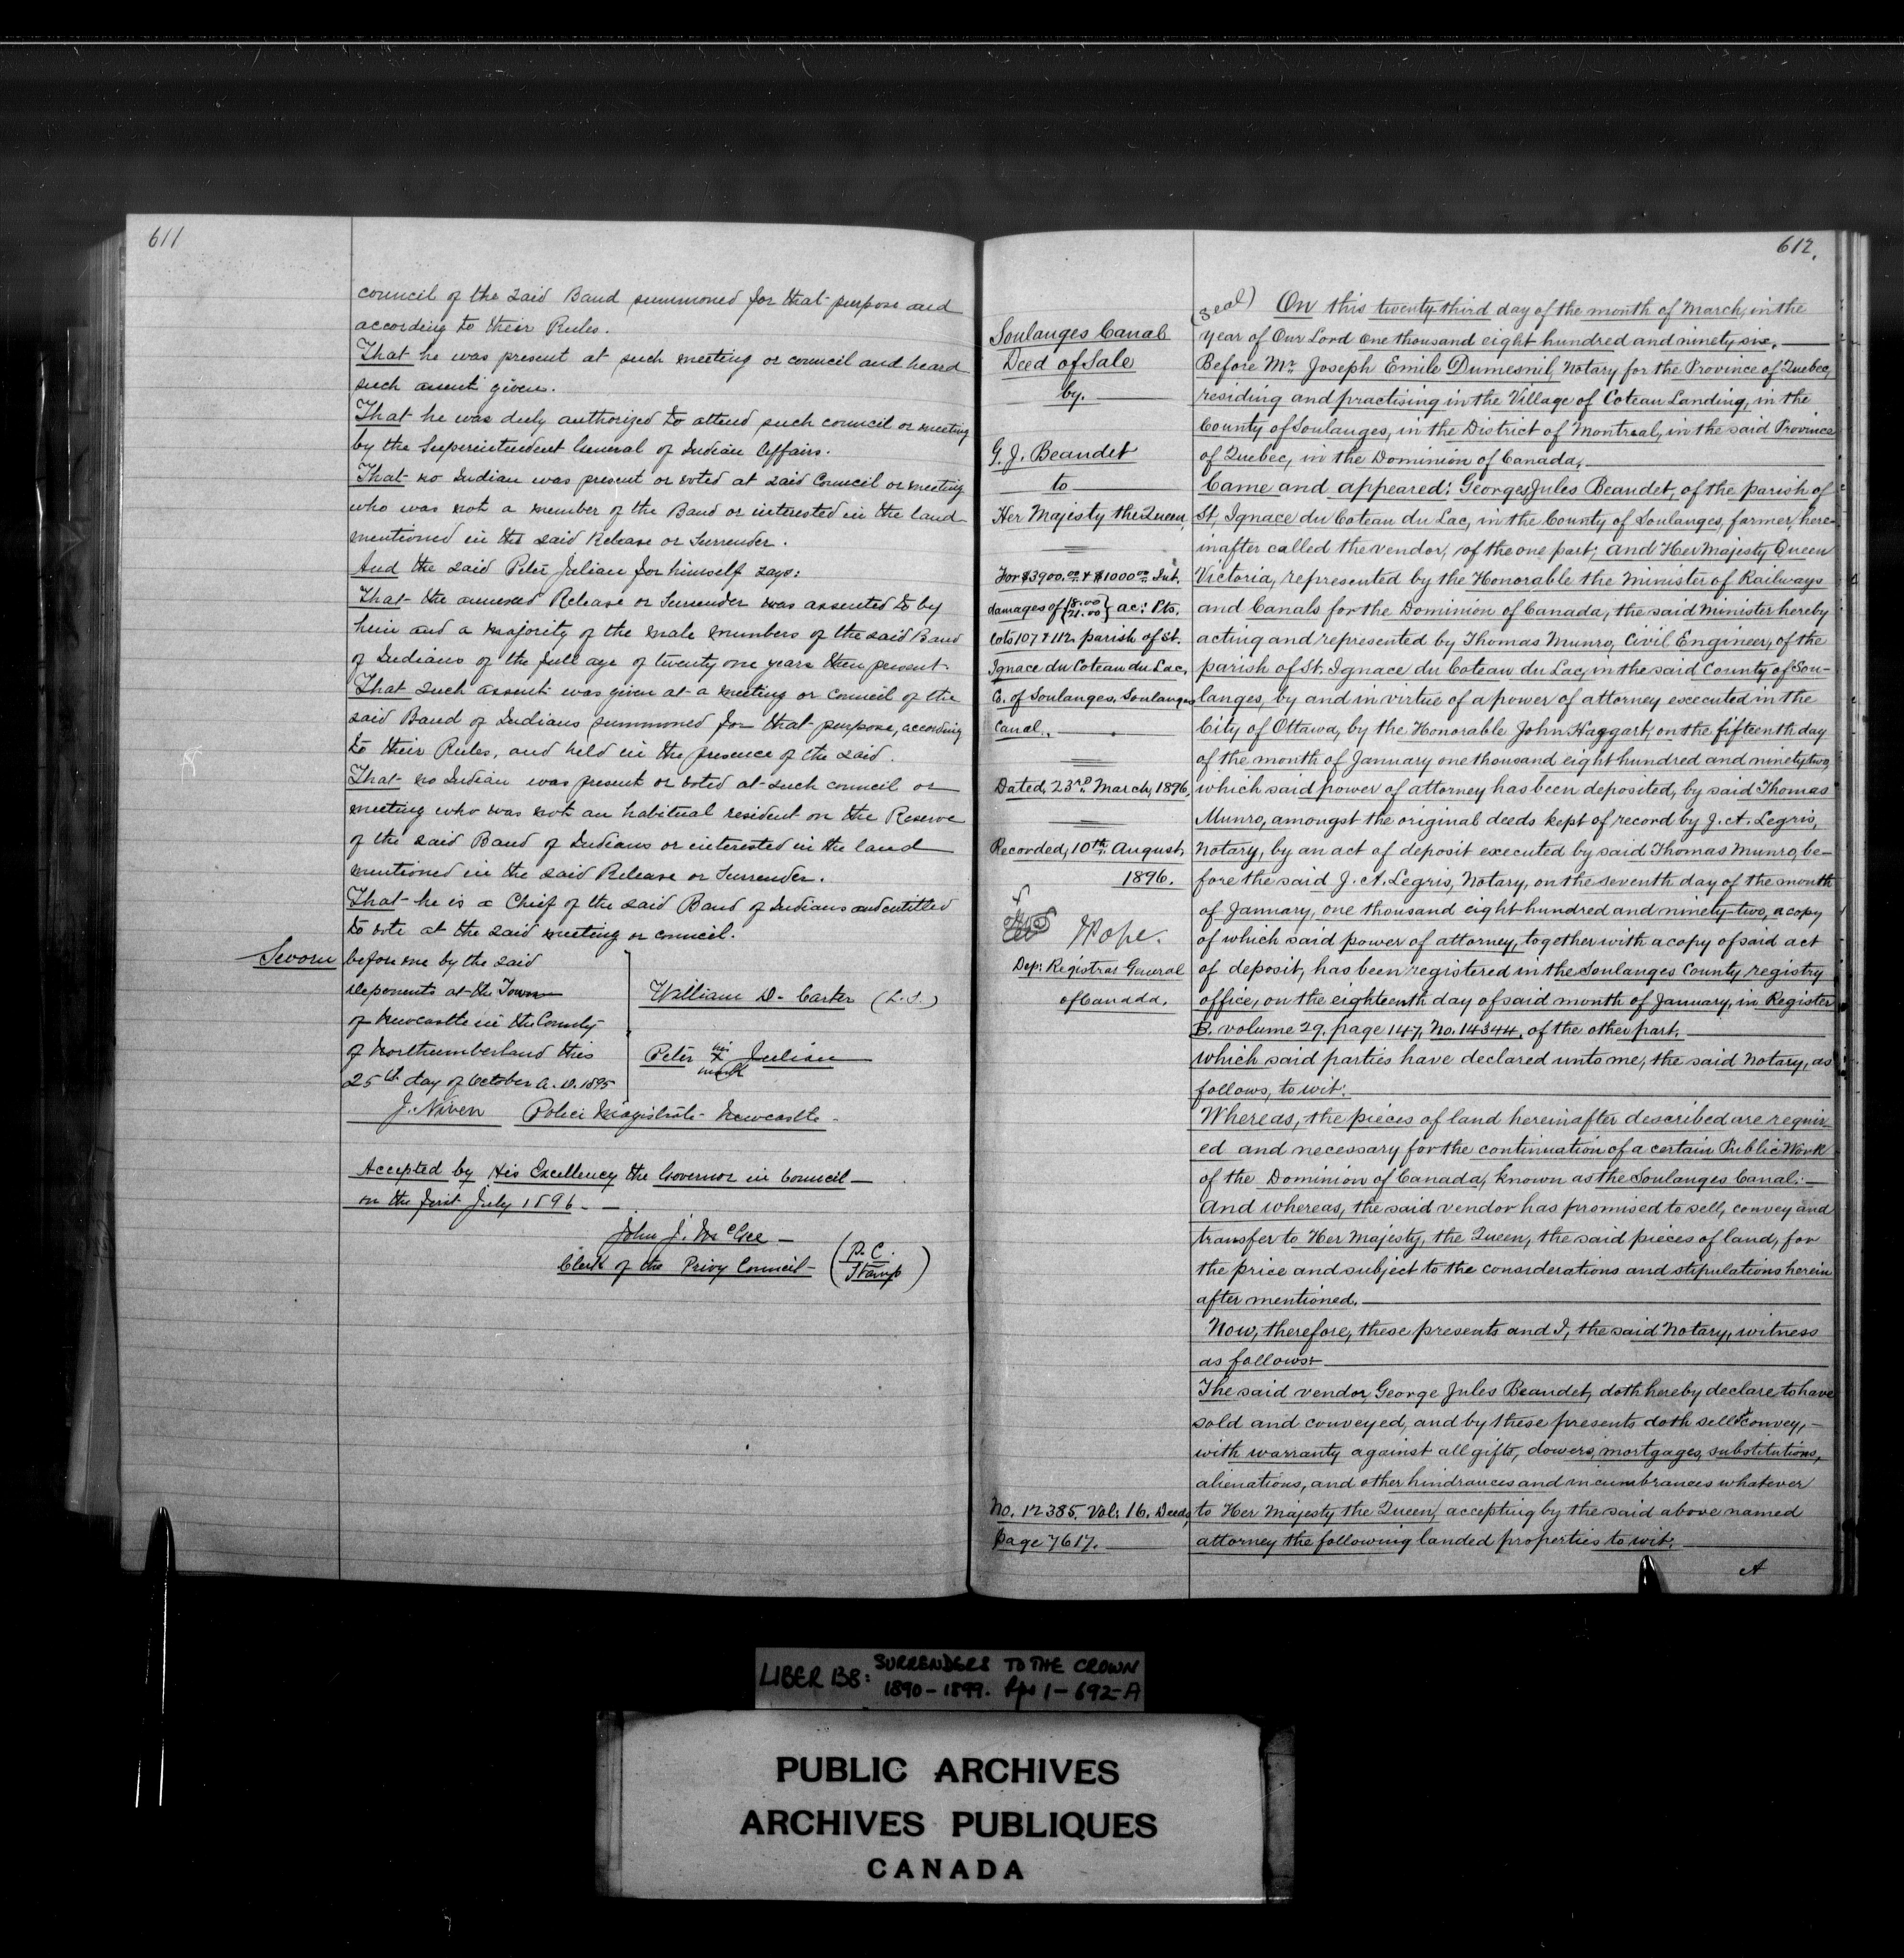 611
council of the said Band summoned for that purpose and
according to their Rules.
That he was present at such meeting or council and heard
such assent given.
That he was duly authorized to attend such council or meeting
by the Superintendent General of Indian Affairs.
That no Indian was present or voted at said Council or meeting
who was not a member of the Band or interested in the land
mentioned in the said Release or Surrender.
And the said Peter Julian for himself says:
That the annexed Release or Surrender was assented to by
him and a majority of the male members of the said Band
of Indians of the full age of twenty one years then present.
That such assent was given at a meeting or council of the
said Band of Indians summoned for that purpose, according
to their Rules, and held in the presence of the said.
That no Indian was present or voted at such council or
meeting who was not an habitual resident on the Reserve
of the said Band of Indians or interested in the land
mentioned in the said Release or Surrender.
That he is a Chief of the said Band of Indians and entitled
to vote at the said meeting or council.
Sworn before me by the said
deponents at the Town
of Newcastle in the County
of Northumberland this
25th day of October A.D. 1895
William D. Carter (L.S.)
Peter his x mark Julian
J. Niven Police Magistrate Newcastle
Accepted by His Excellency the Governor in Council
on the first July 1896.
John J. McGee
Clerk of the Privy Council (P.C. Stamp)
612.
Soulanges Canal
Deed of Sale
by.
G. J. Beaudet
to
Her Majesty the Queen,
For $3900.00 & $1000.00 Int.
damages of {8.00 21.00} ac: Pts.
Lots 107 & 112 parish of St.
Ignace du Coteau du Lac,
Co. of Soulanges. Soulanges
Canal.
Dated, 23rd March, 1896,
Recorded, 10th August,
1896.
JPope.
Dep: Registrar General
of Canada.
No. 12385. Vol: 16. Deeds,
page 7617.
(Seal) On this twenty-third day of the month of March, in the
year of Our Lord One thousand eight hundred and ninety six,
Before Mr. Joseph Emile Dumesnil, Notary for the Province of Quebec,
residing and practising in the Village of Coteau Landing, in the
County of Soulanges, in the District of Montreal, in the said Province
of Quebec, in the Dominion of Canada,
Came and appeared: Georges Jules Beaudet, of the parish of
St. Ignace du Coteau du Lac, in the County of Soulanges, farmer, here-
inafter called the vendor, of the one part; and Her Majesty Queen
Victoria, represented by the Honorable the Minister of Railways
and Canals for the Dominion of Canada, the said Minister hereby
acting and represented by Thomas Munro, Civil Engineer, of the
parish of St. Ignace du Coteau du Lac, in the said County of Sou-
langes, by and in virtue of a power of attorney executed in the
City of Ottawa, by the Honorable John Haggart, on the fifteenth day
of the month of January one thousand eight hundred and ninety two,
which said power of attorney has been deposited, by said Thomas
Munro, amongst the original deeds kept of record by J. A. Legris,
Notary, by an act of deposit executed by said Thomas Munro, be-
fore the said J. A. Legris, Notary, on the seventh day of the month
of January, one thousand eight hundred and ninety-two, a copy
of which said power of attorney, together with a copy of said act
of deposit, has been registered in the Soulanges County registry
office, on the eighteenth day of said month of January, in Register
B. volume 29, page 147, No. 14344, of the other part.
Which said parties have declared unto me, the said Notary, as
follows, to wit:
Whereas, the pieces of land hereinafter described are requir-
ed and necessary for the continuation of a certain Public Work
of the Dominion of Canada, known as the Soulanges Canal:
And whereas, the said vendor has promised to sell, convey and
transfer to Her Majesty, the Queen, the said pieces of land, for
the price and subject to the considerations and stipulations herein
after mentioned.
Now, therefore, these presents and I, the said Notary, witness
as follows:
The said vendor, George Jules Beaudet, doth hereby declare to have
sold and conveyed, and by these presents doth sell & convey,
with warranty against all gifts, dowers, mortgages, substitutions,
alienations, and other hindrances and incumbrances whatever
to Her Majesty the Queen, accepting by the said above named
attorney the following landed properties to wit:
A
LIBER B8: SURRENDERS TO THE CROWN
1890-1899. Pps 1-692-A
PUBLIC ARCHIVES
ARCHIVES PUBLIQUES
CANADA